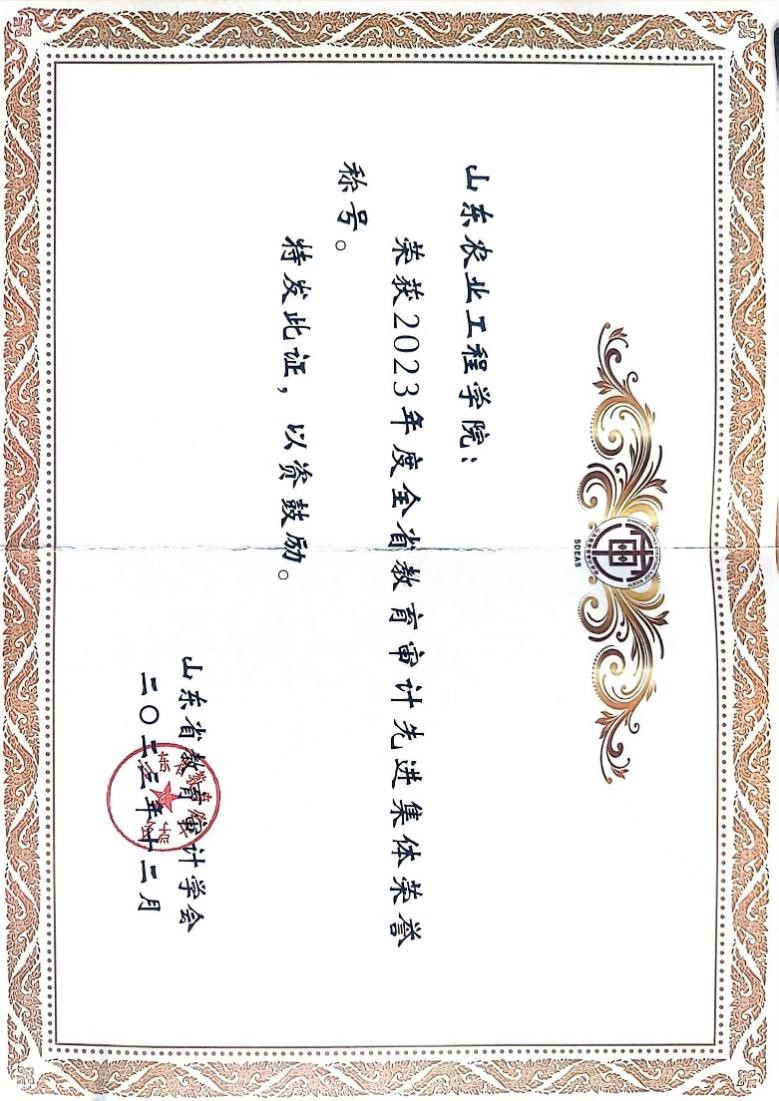 SDEAS
山东农业工程学院：
荣获2023年度全省教育审计先进集体荣誉
称号。
特发此证，以资鼓励。
山东省教育审计学会
二〇二三年十二月